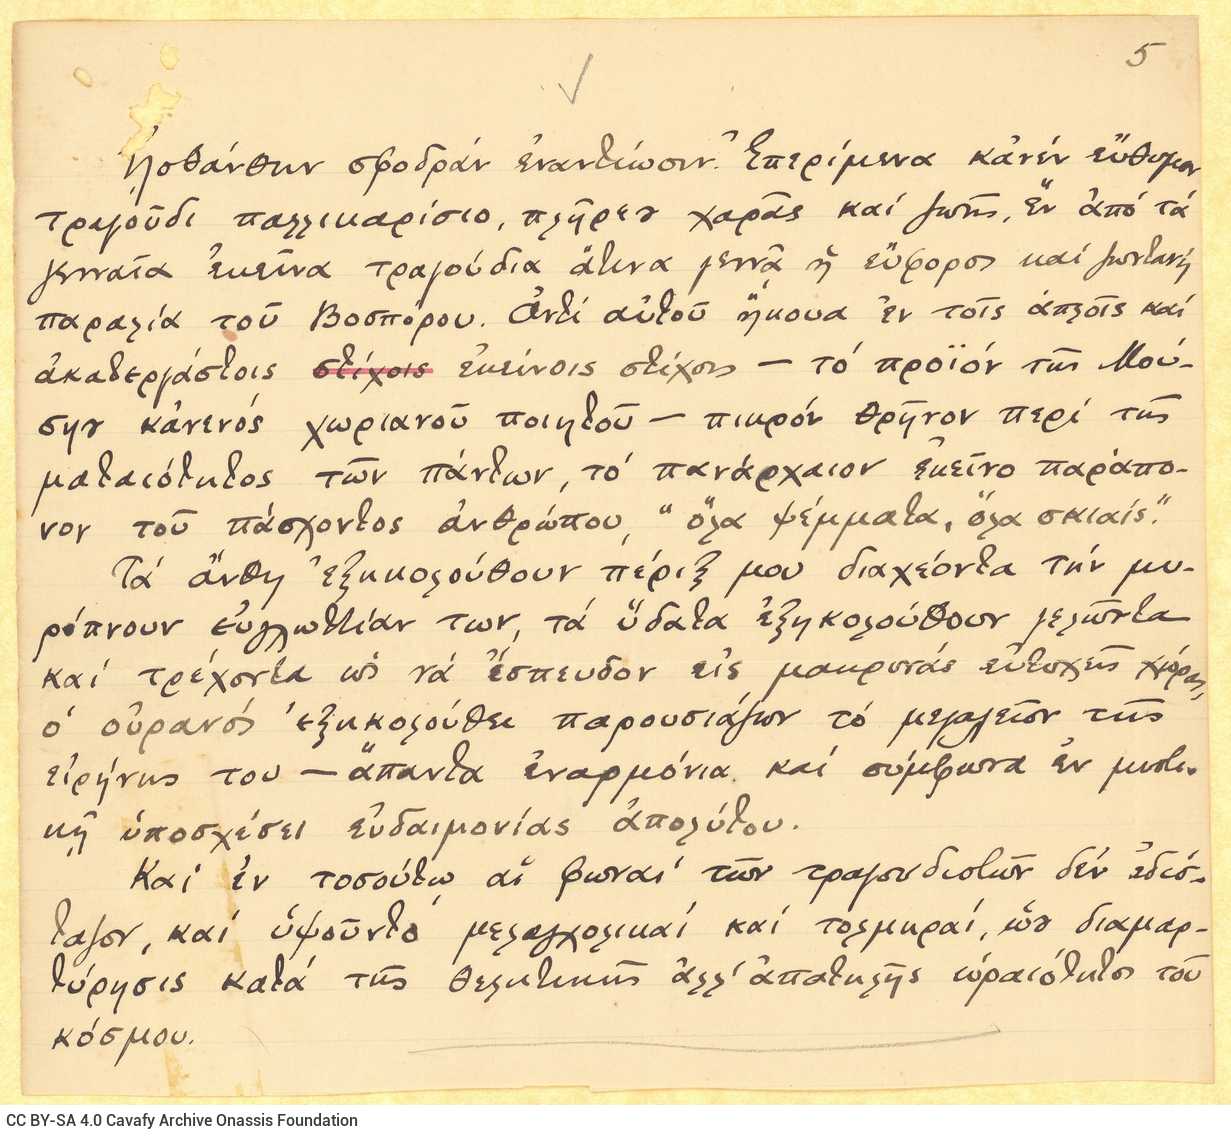 5
Ἠσθάνθην σφοδράν ἐναντίωσιν. Ἐπερίμενα κἀνέν εὔθυμον
τραγοῦδι παλλικαρίσιο, πλῆρες χαρᾶς καί ζωῆς, ἓν ἀπό τά
γενναῖα ἐκεῖνα τραγούδια ἅτινα γεννᾷ ἡ εὔφορος καί ζωντανή
παραλία τοῦ Βοσπόρου. Ἀντί αὐτοῦ ἤκουα ἐν τοῖς ἁπλοῖς καί
ἀκατεργάστοις στίχοις ἐκείνοις στίχοις — τό προϊόν τῆς Μού-
σης κἀνενός χωριανοῦ ποιητοῦ — πικρόν θρῆνον περί τῆς
ματαιότητος τῶν πάντων, τό πανάρχαιον ἐκεῖνο παράπο-
νον τοῦ πάσχοντος ἀνθρώπου, "ὅλα ψέμματα, ὅλα σκιαίς".
Τά ἄνθη ἐξηκολούθουν πέριξ μου διαχέοντα τήν μυ-
ρόπνουν εὐγλωττίαν των, τά ὕδατα ἐξηκολούθουν γελῶντα
καί τρέχοντα ὡς νά ἔσπευδον εἰς μακρυνάς εὐτυχεῖς χώρας,
ὁ οὐρανός ἐξηκολούθει παρουσιάζων τό μεγαλεῖον τῆς
εἰρήνης του — ἅπαντα ἐναρμόνια καί σύμφωνα ἐν μυστι-
κῇ ὑποσχέσει εὐδαιμονίας ἀπολύτου.
Καί ἐν τοσούτῳ αἱ φωναί τῶν τραγουδιστῶν δέν ἐδίσ-
ταζον, καί ὑψοῦντο μελαγχολικαί καί τολμηραί, ὡς διαμαρ-
τύρησις κατά τῆς θελκτικῆς ἀλλ' ἀπατηλῆς ὡραιότητος τοῦ
κόσμου.
CC BY-SA 4.0 Cavafy Archive Onassis Foundation